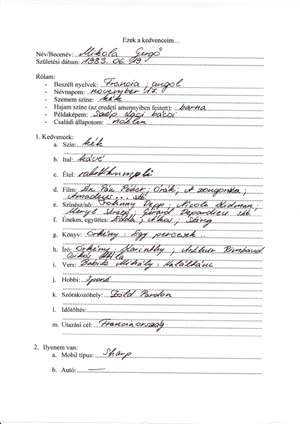 Ezek a kedvenceim...
Név/Becenév: Mikola Gergő
Születési dátum: 1983. 06. 19.
Rólam:
- Beszélt nyelvek: Francia; angol
- Névnapom: november 17.
- Szemem színe: kék
- Hajam színe (az eredeti amennyiben festett): barna
- Példaképem: Szép Laci bácsi
- Családi állapotom: nőtlen
1. Kedvencek:
a. Szín: kék
b. Ital: kávé
c. Étel: rakott krumpli
d. Film: Ha Pán Péter; Órák; A zongorista;
Amadeus... stb.
e. Színész/nő: Johnny Depp; Nicole Kidman;
Meryl Streep; Gérard Depardieu stb.
f. Énekes, együttes: Edda; Ákos; Sting
g. Könyv: Örkény: Egy percesek...
h. Író: Örkény; Karinthy; Arthur Rimbaud
József Attila
i. Vers: Babits Mihály:
j. Hobbi: sport
k. Szórakozóhely: Zöld Pardon
l. Időtöltés:
m. Utazási cél: Franciaország
2. Ilyenem van:
a. Mobil típus: Sharp
b. Autó: —